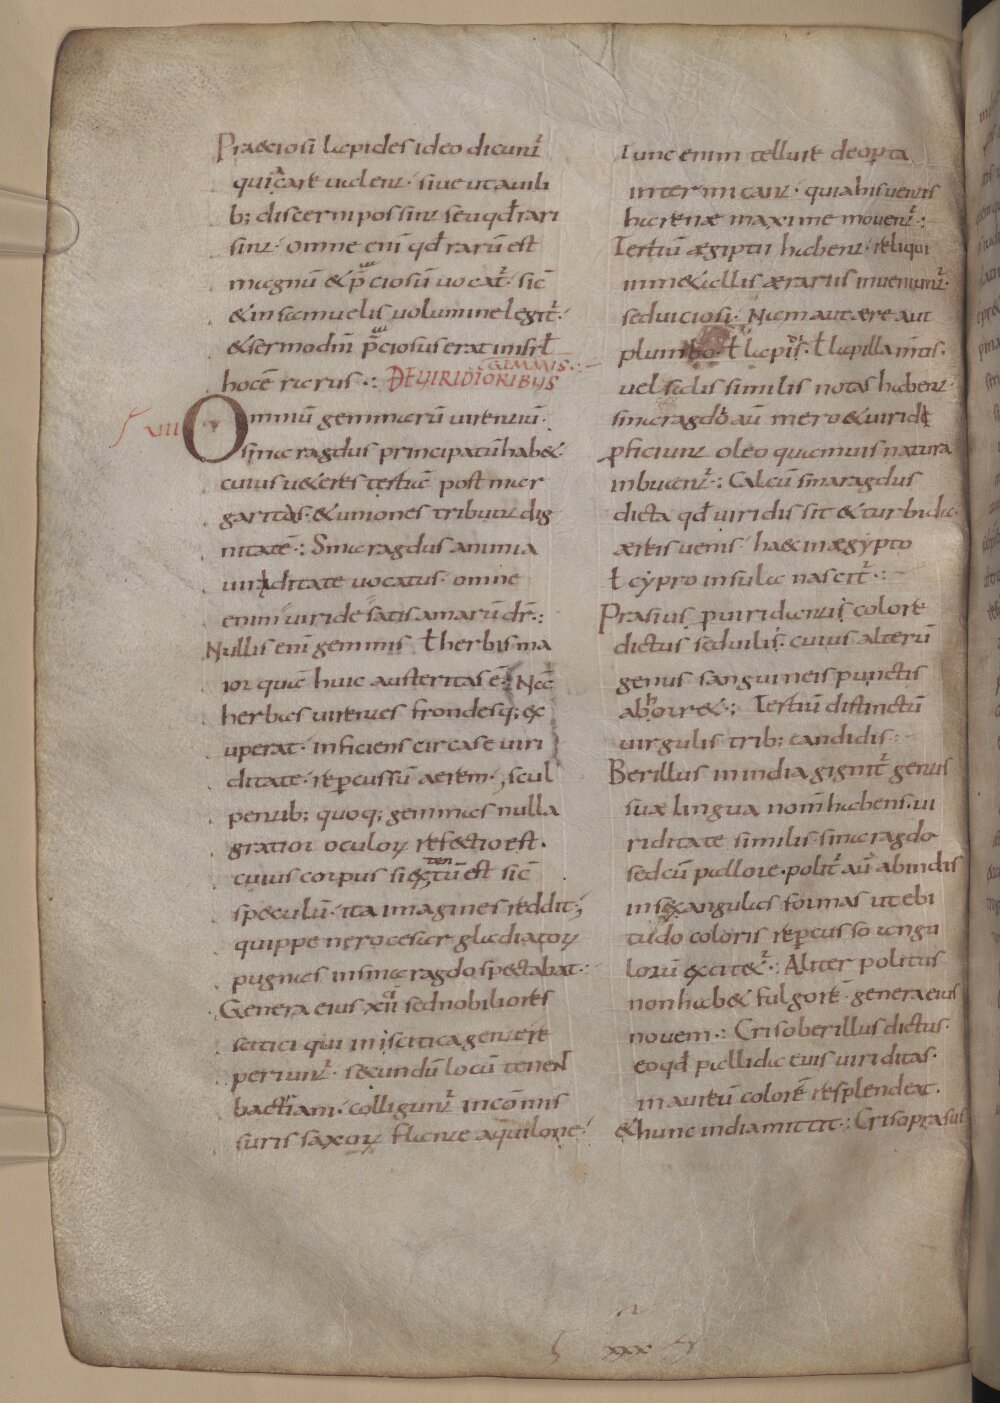 Praeciosi lapides ideo dicunt̄
quia care ualent · siue ut a uili
b; discerni possint seu qđ rari
sint · omne enī qđ rarū est
magnū & p̄ciosū uocat̄ · sic̄
& in samuelis uolumine legit̄ ·
& sermo dnī p̄ciosus erat in isrł
hoc ē rarus · : DE UIRIDIORIBUS
GEMMIS · :
xiii Omniū gemmarū uirentiū ·
smaragdus principatū hab& ·
cuius u&eres tertiā post mar
garitas · & uniones tribuunt dig
nitatē · : Smaragdus a nimia
uiriditate uocatus · omne
enim uiride satis amarū dr̄ · :
Nullis enī gemmis ł herbis ma
ior quā huic austeritas ē · Nā
herbas uirentes frondesq; ex
uperat · inficiens circa se uiri
ditate · repercussū aerem · scul
pentib; quoq; gemmas nulla
gratior oculoꝝ refectio est ·
cuius corpus si extentū est sic̄
speculū · ita imagines reddit ;
quippe nero cesar gladiatoꝝ
pugnas in smaragdo spectabat · :
Genera eius xii sed nobiliores
scitici qui in iscitica gente re
periunt̄ · secundū locū tenent
bactriani · colligunt̄ in cōmis
suris saxoꝝ flante aquilone ·
Tunc enim tellure deopta
intermicant · quia his uentis
harenae maxime mouent̄ · :
Tertiū aegiptii habent · reliqui
in m&allis aerariis inueniunt̄ ·
sed uiciosi · Nam aut aere aut
plumbo · ł lapis · ł lapillamtis ·
uel salis similis notas habent ·
smaragdo aū mero & uiride
ꝓficiunt oleo quamuis natura
inbuant̄ · : Calcū smaragdus
dicta qđ uiridis sit & turbida ·
aereis uenis · haec in aegypto
ł cypro insula nascit̄ · :
Prasius ꝓ uiridiantis colore
dictus sed uilis · cuius alterū
genus sanguineis punctis
abhorr& · : Tertiū distinctū
uirgulis trib; candidis · :
Berillus in india gignit̄ gentis
suae lingua nom̄ habens · ui
riditate similis smaragdo
sed cū pallore · polit̄ aū ab indis
in sexangulas formas ut ebi
tudo coloris repercusso angu
lorū excitet̄ · : Aliter politus
non hab& fulgorē · genera eius
nouem · : Crisoberillus dictus ·
eo qđ pallida eius uiriditas ·
in aureū colorē resplendeat ·
& hunc india mittit · : Crisoprasus
xxx